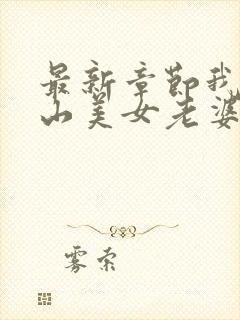 最新章节我
山美女老婆
雾索